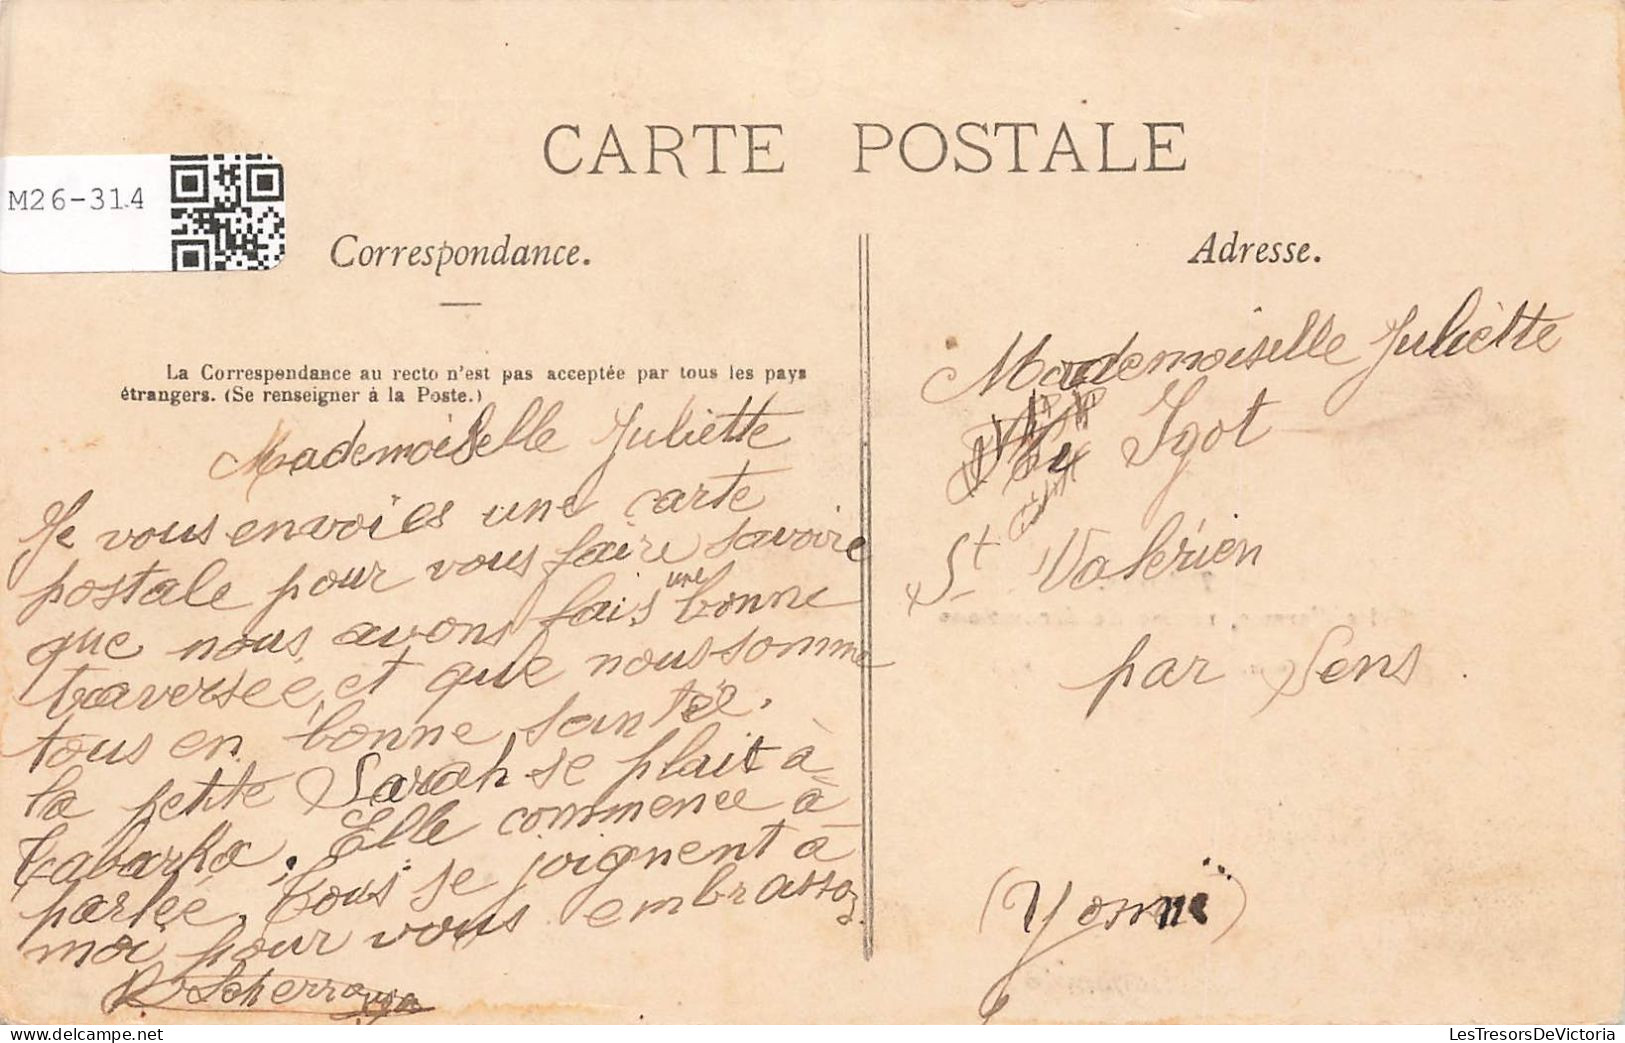 CARTE POSTALE
M26-314
Correspondance.
Adresse.
La Correspondance au recto n'est pas acceptée par tous les pays
étrangers. (Se renseigner à la Poste.)
Mademoiselle Juliette
Je vous envoies une carte
postale pour vous faire savoire
que nous avons fais une bonne
traversée, et que nous somme
tous en bonne santée.
la petite Sarah se plait à
Tabarka. Elle commence à
parlée. Tous se joignent à
moi pour vous embrasser
Mademoiselle Juliètte
Igot
St Valérien
par Sens.
(Yonne)
LesTresorsDeVictoria